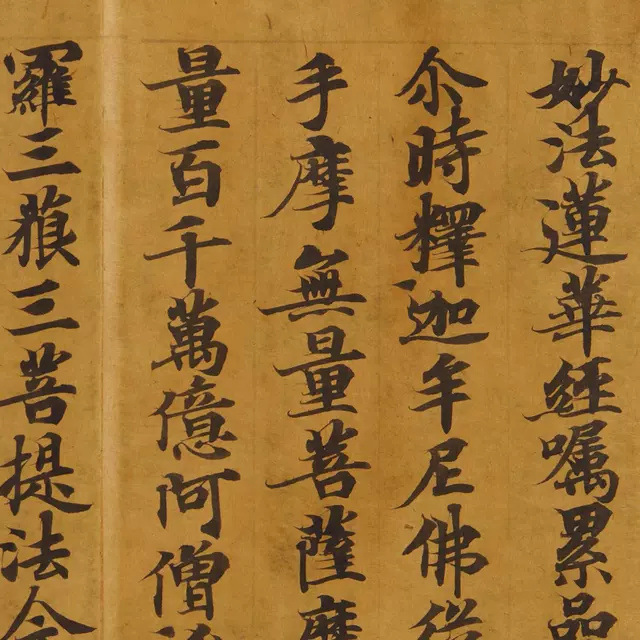 妙法蓮華經嘱累品
尒時釋迦牟尼佛從
手摩無量菩薩摩
量百千萬億阿僧
羅三藐三菩提法今